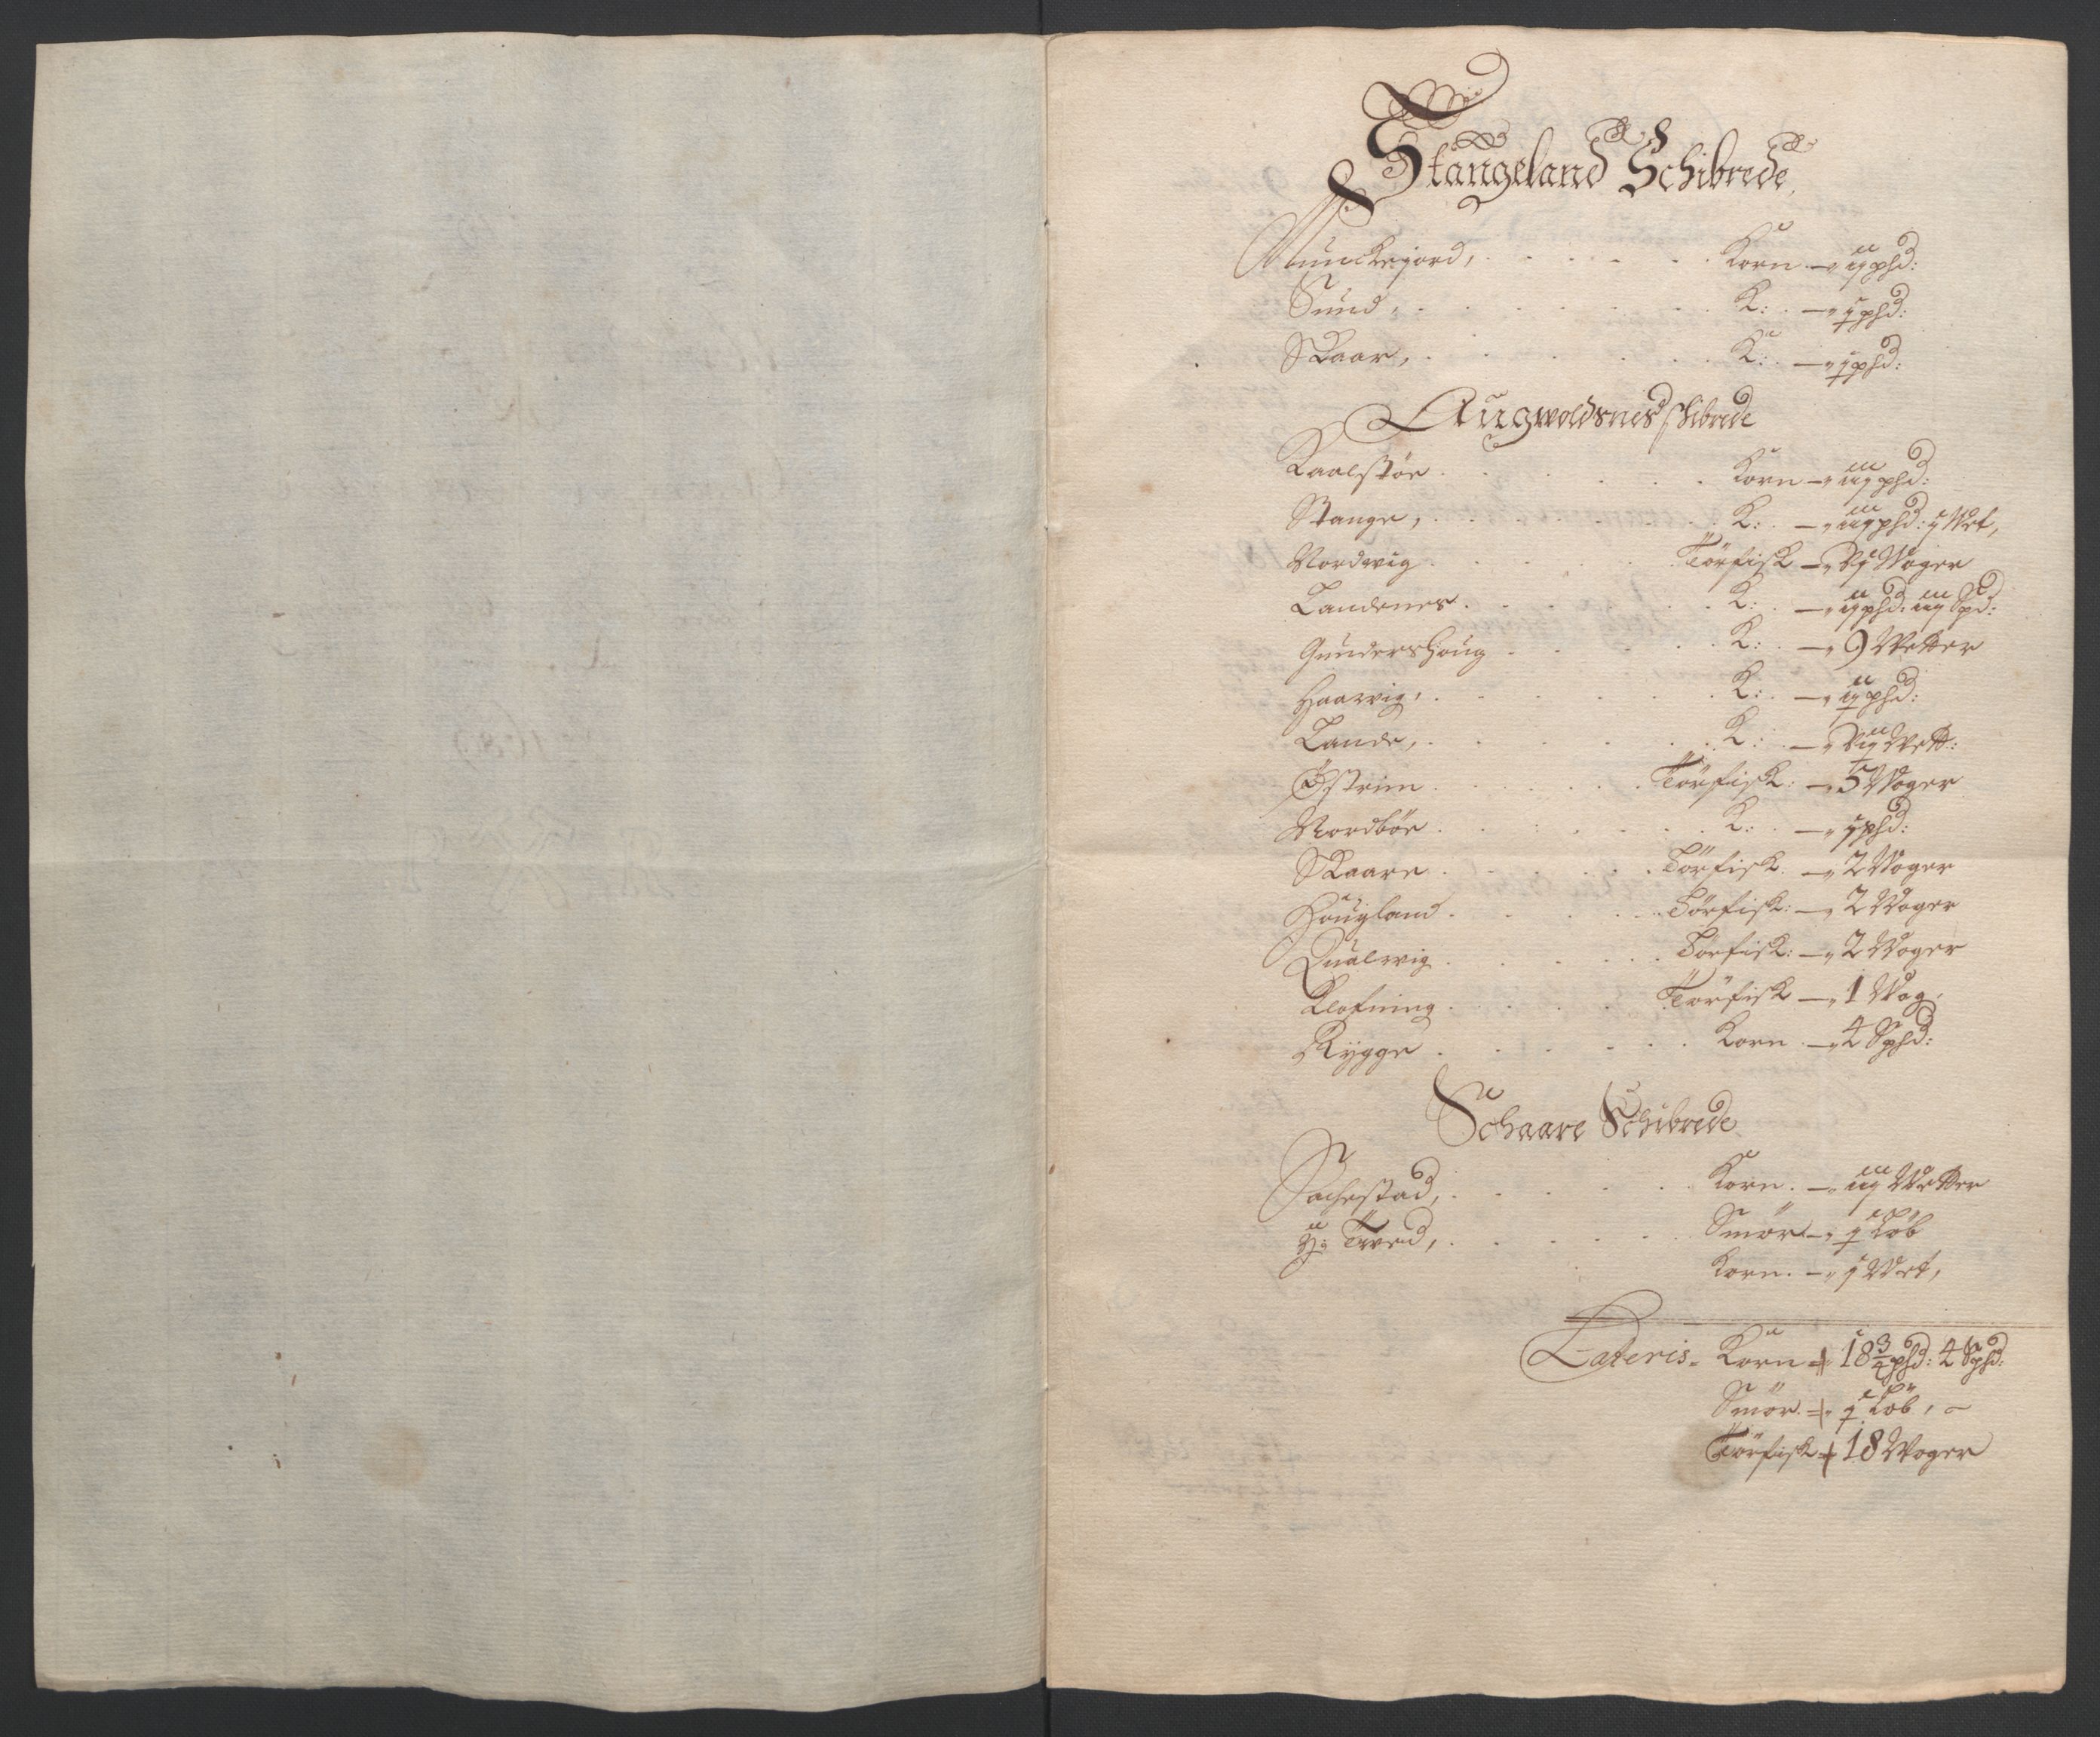 Stangeland Schibrede
Munckejord, Korn - ij phd:
Sund, K: - j phd:
Skaar, K: - j phd:
Augwoldsnes schibrede
Kaalstöe Korn - iij phd:
Stange, K: - iij phd: j Wet,
Nordwig Törfisk - Vj Woger
Landenes K: - ij phd: iij Spd:
Gundershoug K: - 9 Wetter
Haawig, K: - ij phd:
Lande, K: - Vij Wett:
Östrim Törfisk: - 5 Woger
Nordböe K: - j phd:
Skaare Törfisk. - 2 Woger
Hougland Törfisk: - 2 Woger
Qualwig Törfisk: - 2 Woger
Klofning Törfisk - 1 Wog,
Rygge Korn - 4 Sphd:
Schaare Schibrede
Sachestad, Korn. - iij Wetter
Tved, Smör - j Löb
Korn. - j Wet,
Lateris. Korn 18 3/4 phd: 4 Sphd:
Smör. j Löb, -
Törfisk 18 Woger